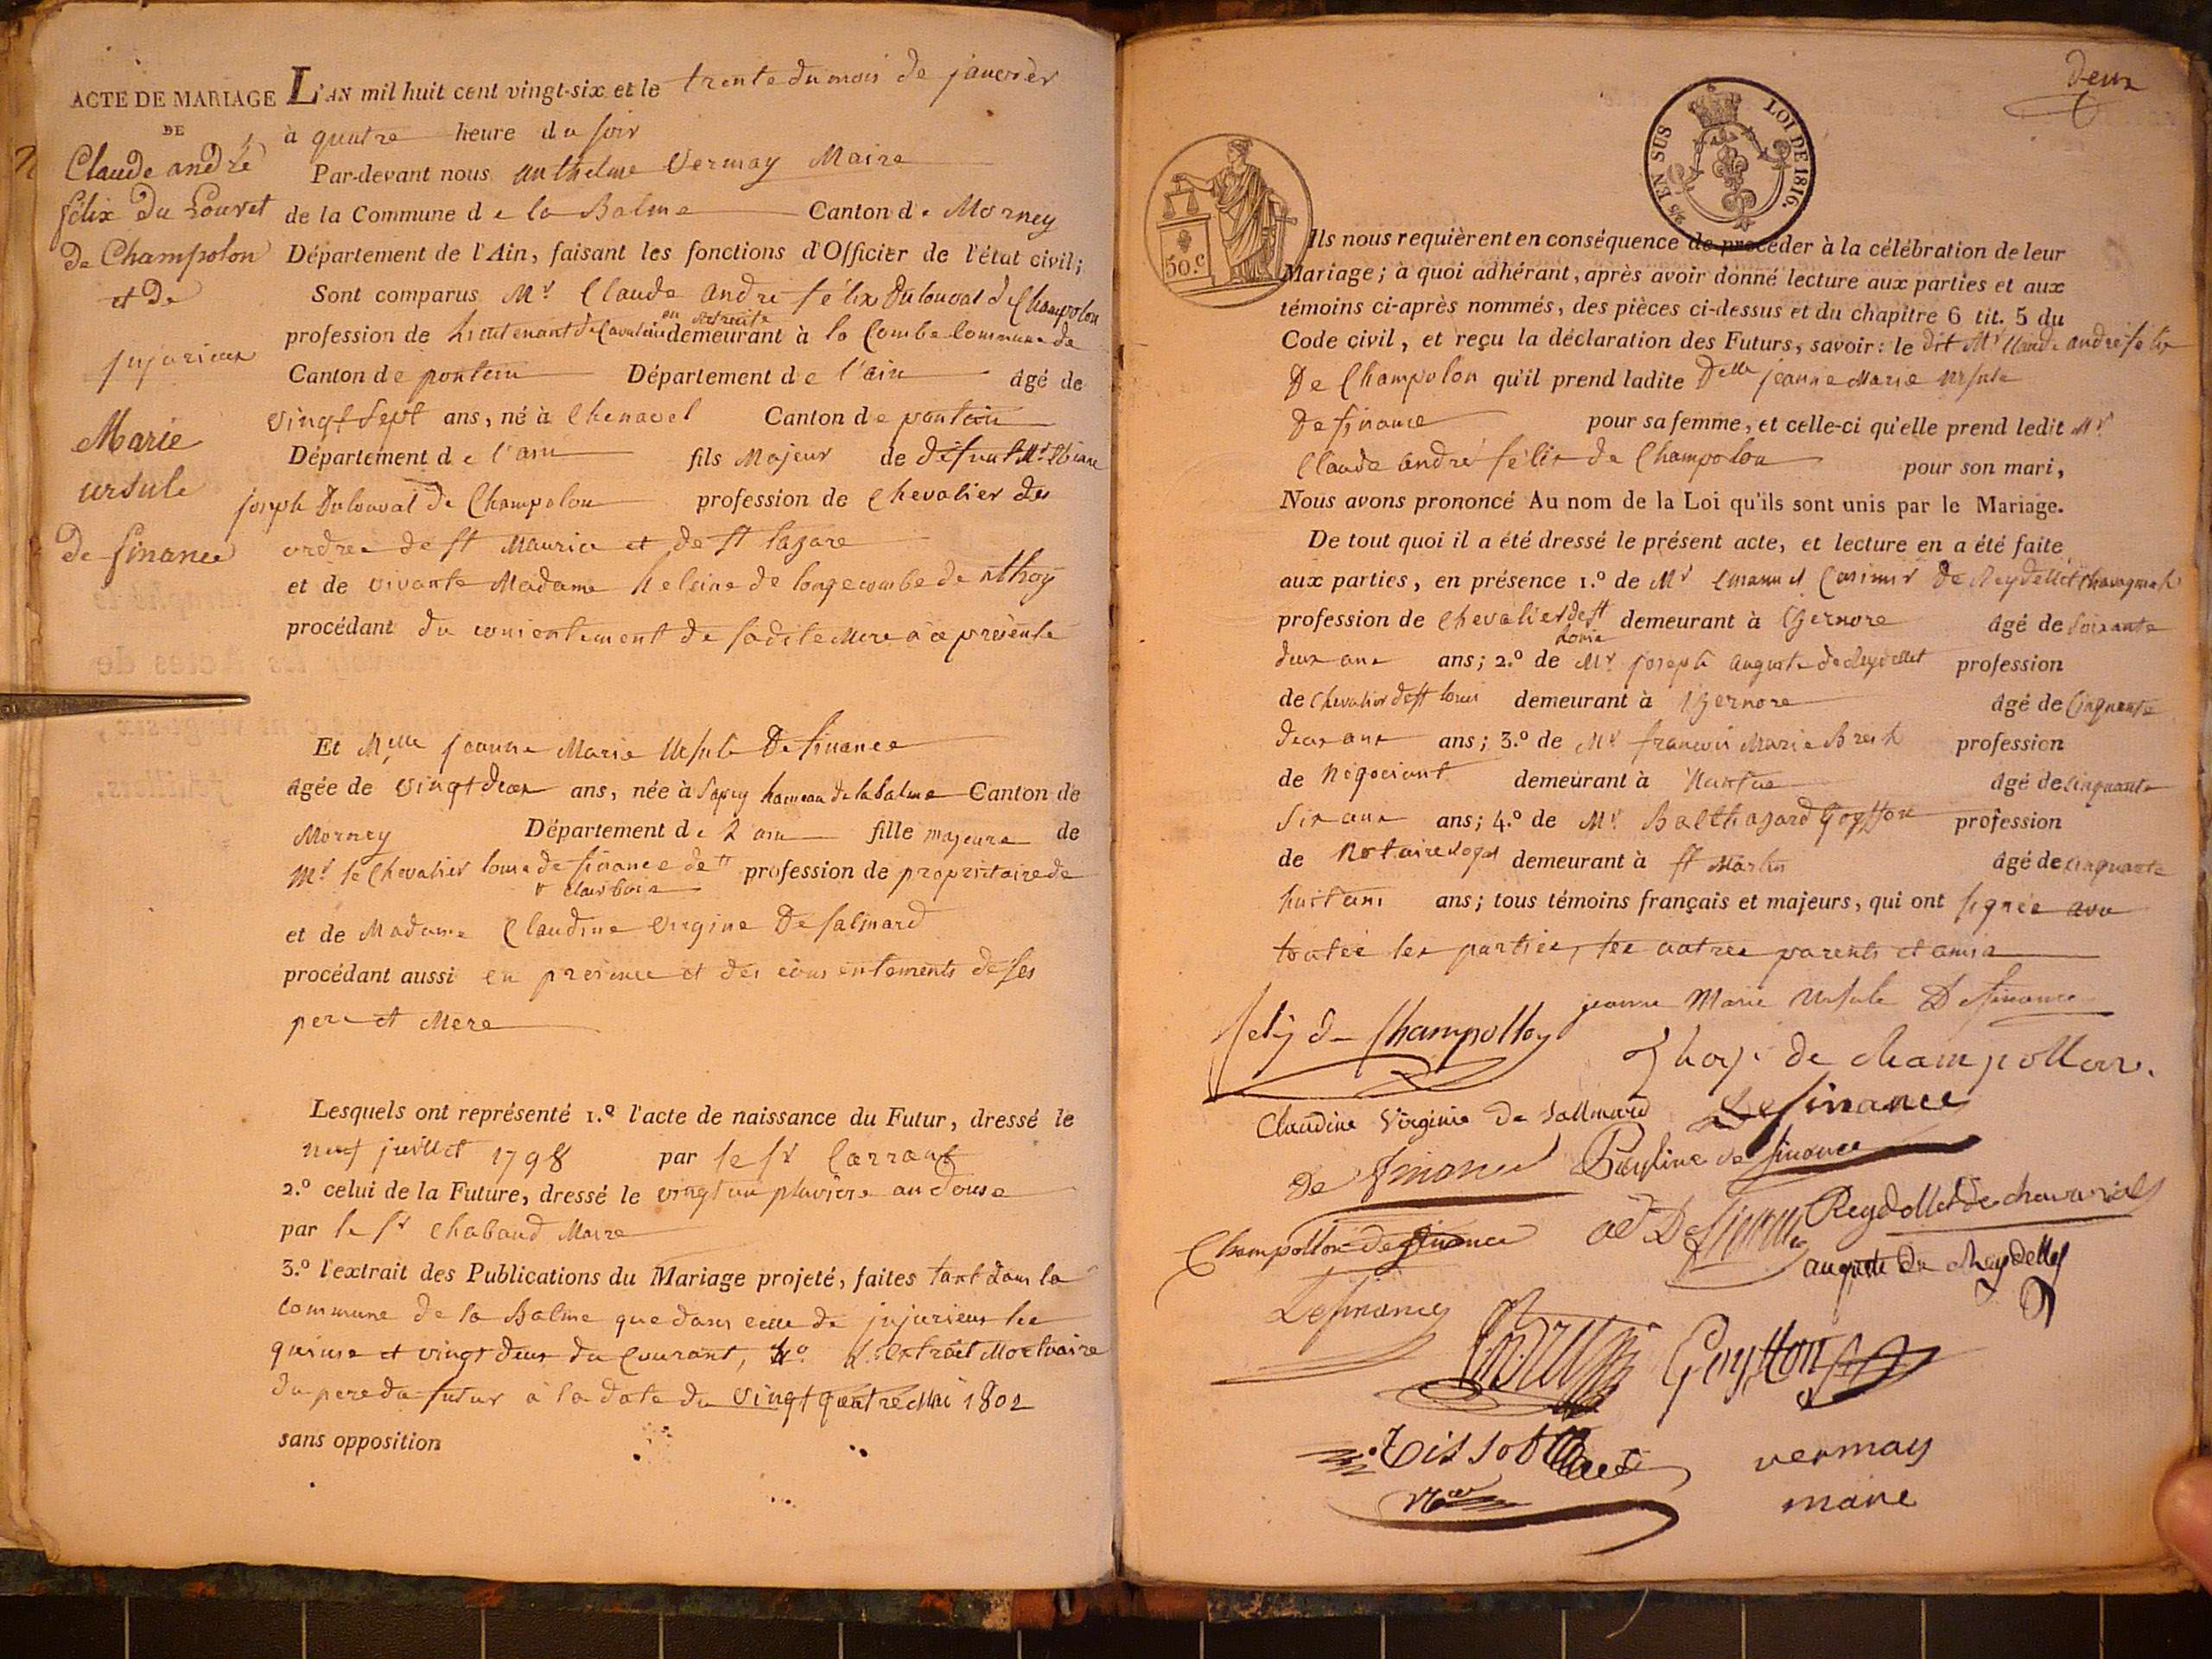 ACTE DE MARIAGE
DE
Claude andré
félix Du Louvat
de Champolon
et de
jujurieux
Marie
ursule
De finance
L'AN mil huit cent vingt-six et le trente du mois de janvier
à quatre heure du soir
Par-devant nous anthelme Vermay Maire
de la Commune de la Balme Canton de Mornay
Département de l'Ain, faisant les fonctions d'Officier de l'état civil;
Sont comparus Mr Claude andré félix Dulouvat de Champolon
profession de Lieutenant de Cavalerie en retraite demeurant à la Combe Commune de
Canton de pontein Département de l'ain âgé de
vingt sept ans, né à Chenavel Canton de pontein
Département de l'ain fils Majeur de défunt Mr
joseph Dulouvat de Champolon profession de Chevalier des
ordres de St Maurice et de St lazare
et de vivante Madame helaine de longecombe de thoy
procédant du consentement de sadite Mere a ce présente
Et Melle jeanne Marie Ursule De finance
âgée de vingt deux ans, née à Sapey hameau de la balme Canton de
Morney Département de l'ain fille majeure de
Mr le Chevalier louis de finance de
clairbois profession de propriétaire
et de Madame Claudine virgine De salmard
procédant aussi en présence et des consentements de ses
pere et Mere
Lesquels ont représenté 1.º l'acte de naissance du Futur, dressé le
neuf juillet 1798 par le sr Carraut
2.º celui de la Future, dressé le vingt un pluviose an douse
par le sr Chaboud Maire
3.º l'extrait des Publications du Mariage projeté, faites tant dans la
commune de la Balme que dans celle de jujurieux les
quinse et vingt deux du Courant, 4º L'extrait Mortuaire
du pere du futur à la date du vingt quatre Mai 1802
sans opposition
deux
50.c
EN SUS LOI DE 1816.
Ils nous requièrent en conséquence de procéder à la célébration de leur
Mariage; à quoi adhérant, après avoir donné lecture aux parties et aux
témoins ci-après nommés, des pièces ci-dessus et du chapitre 6 tit. 5 du
Code civil, et reçu la déclaration des Futurs, savoir: le dit Mr Claude andré félix
De Champolon qu'il prend ladite Delle jeanne Marie ursule
De finance pour sa femme, et celle-ci qu'elle prend ledit Mr
Claude andré félix de Champolon pour son mari,
Nous avons prononcé Au nom de la Loi qu'ils sont unis par le Mariage.
De tout quoi il a été dressé le présent acte, et lecture en a été faite
aux parties, en présence 1.º de Mr Emanuel Casimir De Reydellet
profession de Chevalier de St Louis demeurant à Izernore âgé de soixante
deux ans ans; 2.º de Mr joseph auguste de Reydellet profession
de Chevalier de St louis demeurant à Izernore âgé de Cinquante
deux ans ans; 3.º de Mr francois Marie profession
de Négociant demeurant à Nantua âgé de cinquante
six ans ans; 4.º de Mr Balthazard Goyffon profession
de Notaire royal demeurant à St Martin âgé de cinquante
huit ans ans; tous témoins français et majeurs, qui ont signée avec
toutes les parties, les autres parents et amis
felix de Champollon jeanne Marie Ursule De finance
thoy de champollon.
Claudine Virginie de Sallmard Definance
De finance Pauline de finance
Champollon de finance ad De finance Reydellet de
auguste de Reydellet
Definance
Goyffon
Tissot
vermay
maire